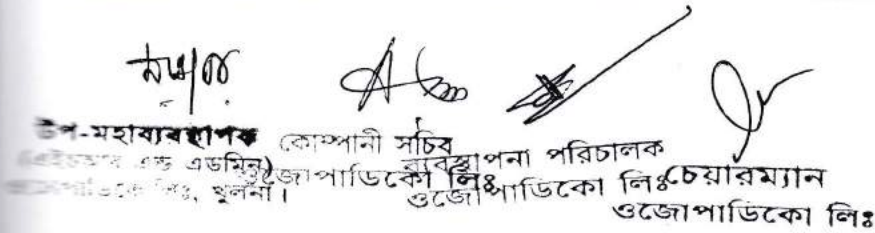 উপ-মহাব্যবস্থাপক
(এইচআর এন্ড এডমিন)
ওজোপাডিকো লিঃ, খুলনা।
কোম্পানী সচিব
ওজোপাডিকো লিঃ
ব্যবস্থাপনা পরিচালক
ওজোপাডিকো লিঃ
চেয়ারম্যান
ওজোপাডিকো লিঃ